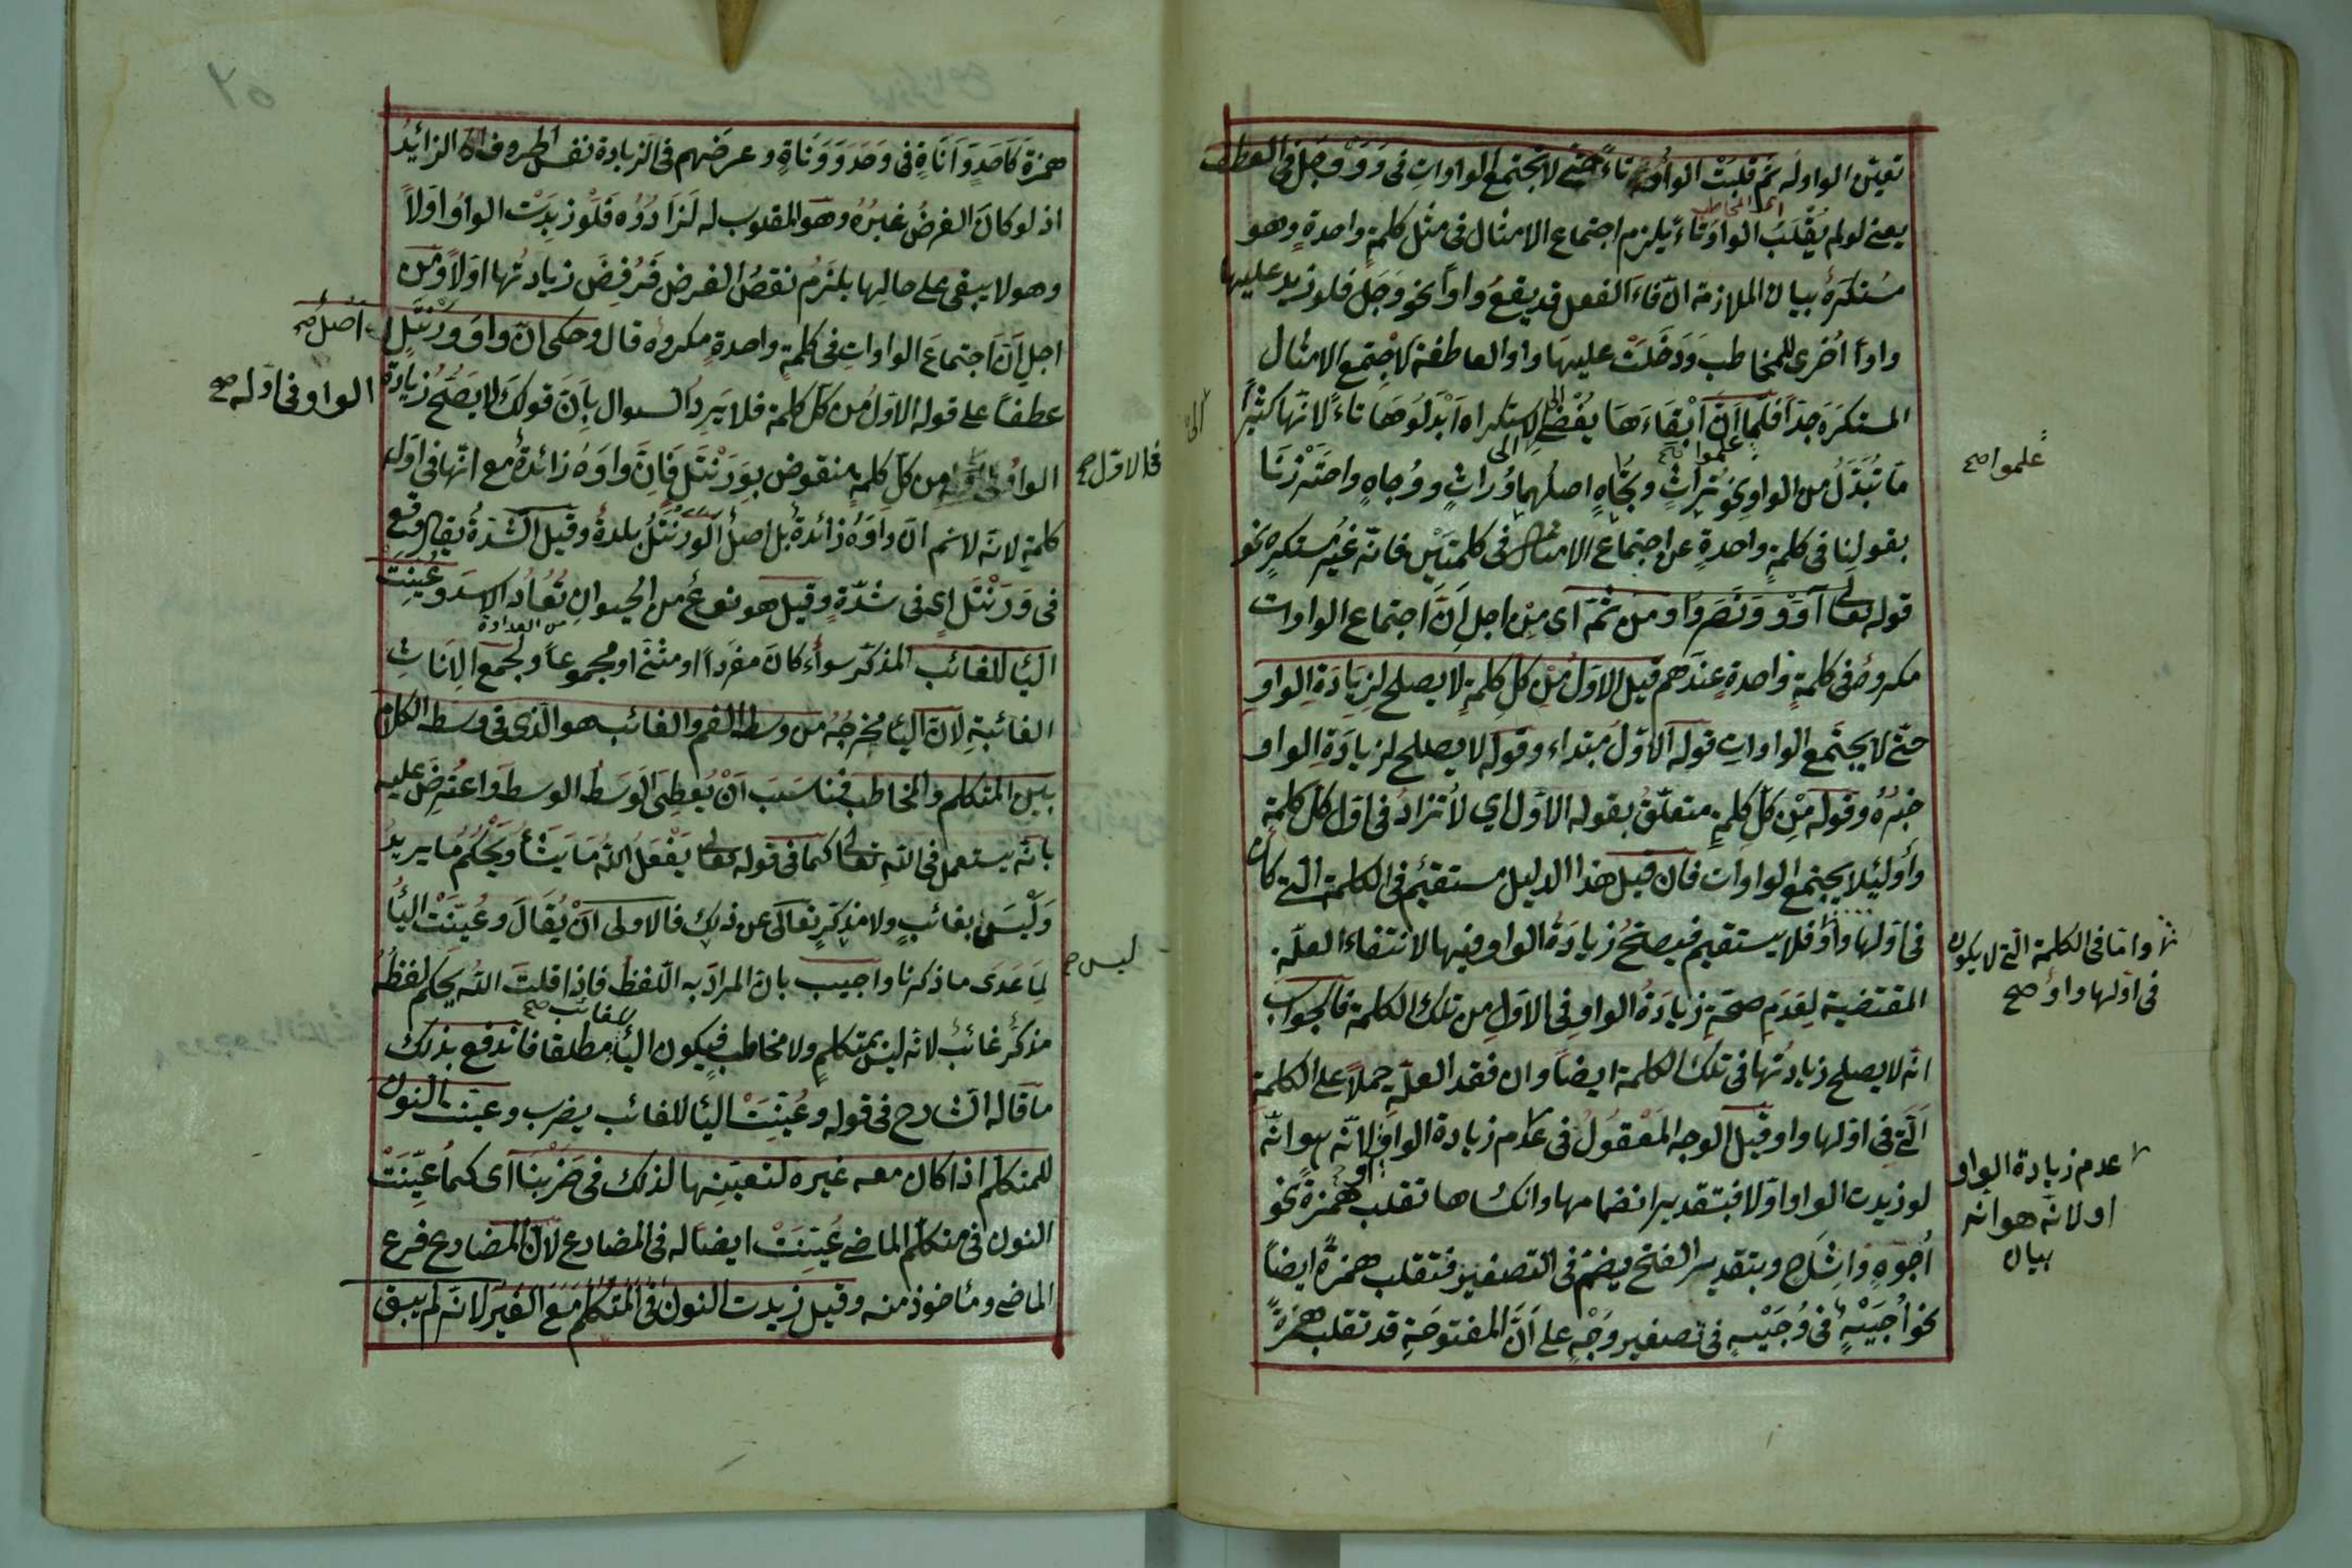 تعيّن الواو له ثم قلبت الواو تاءً حتى لا تجتمع الواوات في وَوَوْجَل في العطف
يعنى لو لم يُقْلَبْ الواوُ تاءً يلزم اجتماع الامثال في مثل كلمةٍ واحدةٍ وهو
مُستكرَهٌ بيان الملازمة انّ فاءَ الفعل قد يقعُ واواً نحو وَجِلَ فلو زيد عليها
واواً اُخرى للمخاطب وَدَخَلَتْ عليها واو العاطفة لاجتمع الامثال
المستكرَه جدّاً فلمّا اَنَّ اِبْقَاءَهَا يُفْضِى الى الاستكراه اَبْدَلُوهَا تاءً لانّها كثيراً
مّا تُبْدَلُ من الواو نحو تراثٍ وتُجَاهٍ اصلُهما وُراثٍ ووُجاهٍ واحترزنا
بقولنا في كلمةٍ واحدةٍ عن اجتماع الامثال في كلمتَيْن فانّه غيرُ مستكرهٍ نحو
قوله تعالى آوَوْا وَنَصَرُوا ومن ثمّ اى من اجل اَنَّ اجتماع الواوات
مكروهٌ في كلمةٍ واحدةٍ عندهم قيل الاوّل من كلّ كلمةٍ لا يصلح لزيادَةِ الواو
حتّى لا يجتمع الواوات قوله الاوّل مبتداء وقوله لا يصلح لزيادَةِ الواو
خبرُه وقوله مِن كلّ كلمةٍ متعلّقٌ بقوله الاوّل اي لا تزادُ في اوّل كلّ كلمة
واوٌ لئلا يجتمع الواوات فان قيل هذا الدليل مستقيمٌ في الكلمة الّتى كان
في اوّلها واوٌ فلا يستقيم فيصلحُ زيادَةُ الواو فيها لانتفاء العلّة
المقتضية لِعَدَمِ صحّةِ زيادَةُ الواو في الاوّلِ من تلك الكلمة فالجواب
انّه لا يصلح زيادتُها في تلك الكلمة ايضاً وان فقد العلّة حملاً على الكلمة
الّتى في اوّلها واو وقيل الوجه المَعْقُولُ في عدم زيادة الواو لانّه هو انّه
لو زيدت الواو اوّلا فبتقدير انضمامها وانكسارها تقلب همزةً نحو
اُجُوهٍ وَاِشَاحٍ وبتقدير الفتح يضمّ في التصغير فتقلب همزةً ايضاً
نحو اُجَيْهٍ في وُجَيْهٍ في تصغير وَجْهٍ على اَنَّ المفتوحَةِ قد تقلب همزةً
علموا صح
الى
وامّا في الكلمة الّتى لا يكون
في اوّلها واوٌ صح
عدم زيادة الواو
اوّلا لانّه هو انه
بيان
همزة كَاَحَدٍ وَاَنَاةٍ في وَحَدٍ وَوَنَاةٍ وغرضهم في الزيادة نفس الحروف الزائدُ
اذ لو كانَ الغرضُ غيرُه وهو المقلوب له لَزَادُوْه فلو زيدَتْ الواوُ اوّلاً
وهو لا يبقى على حالها يلزمُ نقصُ الغرض فَرُفِضَ زيادتُها اوّلاً ومن
اجل اَنَّ اجتماعَ الواواتِ في كلمةٍ واحدةٍ مكروه قال وحكى انّ واوَ وَرَنْتَلٍ
اصل صح
عطفاً على قوله الاوّلُ من كلّ كلمة فلا يَرِدُ السوال بِاَنّ قولكَ لا يَصْلُحُ زيادة
الواو في اوّله صح
الواوِ مِن كلّ كلمةٍ منقوض بوَرَنْتَل فَاِنَّ واوَهُ زائدةٌ مع انّها في اوّل
في الاوّل صح
كلمةٍ لانّه لا نم انّ واوَهُ زائدةٌ بل اصلٌ اَلْوَرَنْتَلُ بلدةٌ وقيل الشدّةُ يقال وقع
في وَرَنْتَل اى في شدّةٍ وقيل هو نوعٌ من الحيوان تُعَادُ الاسدَ وعُيِّنَتِ
من العداوة
اليا للغائب المذكّر سواءٌ كانَ مفرداً او مثنّى او مجموعاً ولجمع الاِناثِ
الغائبةِ لانّ اليا مخرجُه من وسط الفم والغائب هو الّذى في وسط الكلام
بين المتكلم والمخاطب فناسَبَ اَنْ يُعطِىَ الْوَسَطُ الوسطَ واعترضَ عليه
بانّه يستعمل في اللّه تعالى كما في قوله تعالى يَفْعَلُ اللّه مَا يَشَاءُ وَيَحْكُمُ مَا يريدُ
وَلَيْسَ بغائبٍ ولا مذكّرٍ تعالى عن ذلك فالاولى اَنْ يُقالَ وعُيّنَتْ اليا
لِمَا عَدَى ما ذكرنا واجيب بانّ المرادَ به اللّفظُ فاذا قلتَ اللّه يحكم لفظَهُ
ليس صح
مذكّرٌ غائبٌ لانّه ليس بمتكلمٍ ولا مخاطبٍ فيكون اليا مطلقا فاندفع بذلك
للغائب صح
ما قاله الشارح في قوله وعُيّنَتْ اليا للغائب يضرب وعيّنت النون
للمتكلم اذا كان معه غيره لتعيّنها لذلك في ضَرَبْنَا اى كما عُيّنَتْ
النون في متكلّم الماضى عُيّنَتْ ايضاً له في المضارع لانّ المضارع فرع
الماضى ومأخوذ منه وقيل زيدت النون في المتكلّم مَعَ الغَيْرِ لانّه لم يبق